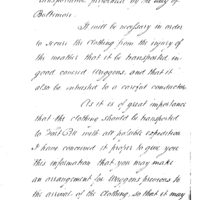 transportation provided by the way of
Baltimore.
It will be necessary in order
to secure the clothing from the injury of
the weather that it be transported in
good covered Waggons, and that it
also be intrusted to a careful conductor.
As it is of great importance
that the clothing should be transported
to Fort Pitt with all possible expedition
I have conceived it proper to give you
this information that you may make
an arrangement for Waggons previous to
the arrival of the Clothing, so that it may